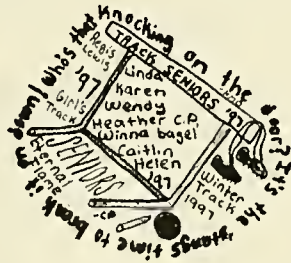 Who's that Knocking on the door? It's the gang, time to break it down!
TRACK SENIORS '97
Regis
Lewis
'97
Girl's
Track
Linda
Karen
Wendy
Heather C.P.
Winna bagel
Caitlin
Helen
'97
SENIORS
Eternal
Flame
Winter
Track
1997